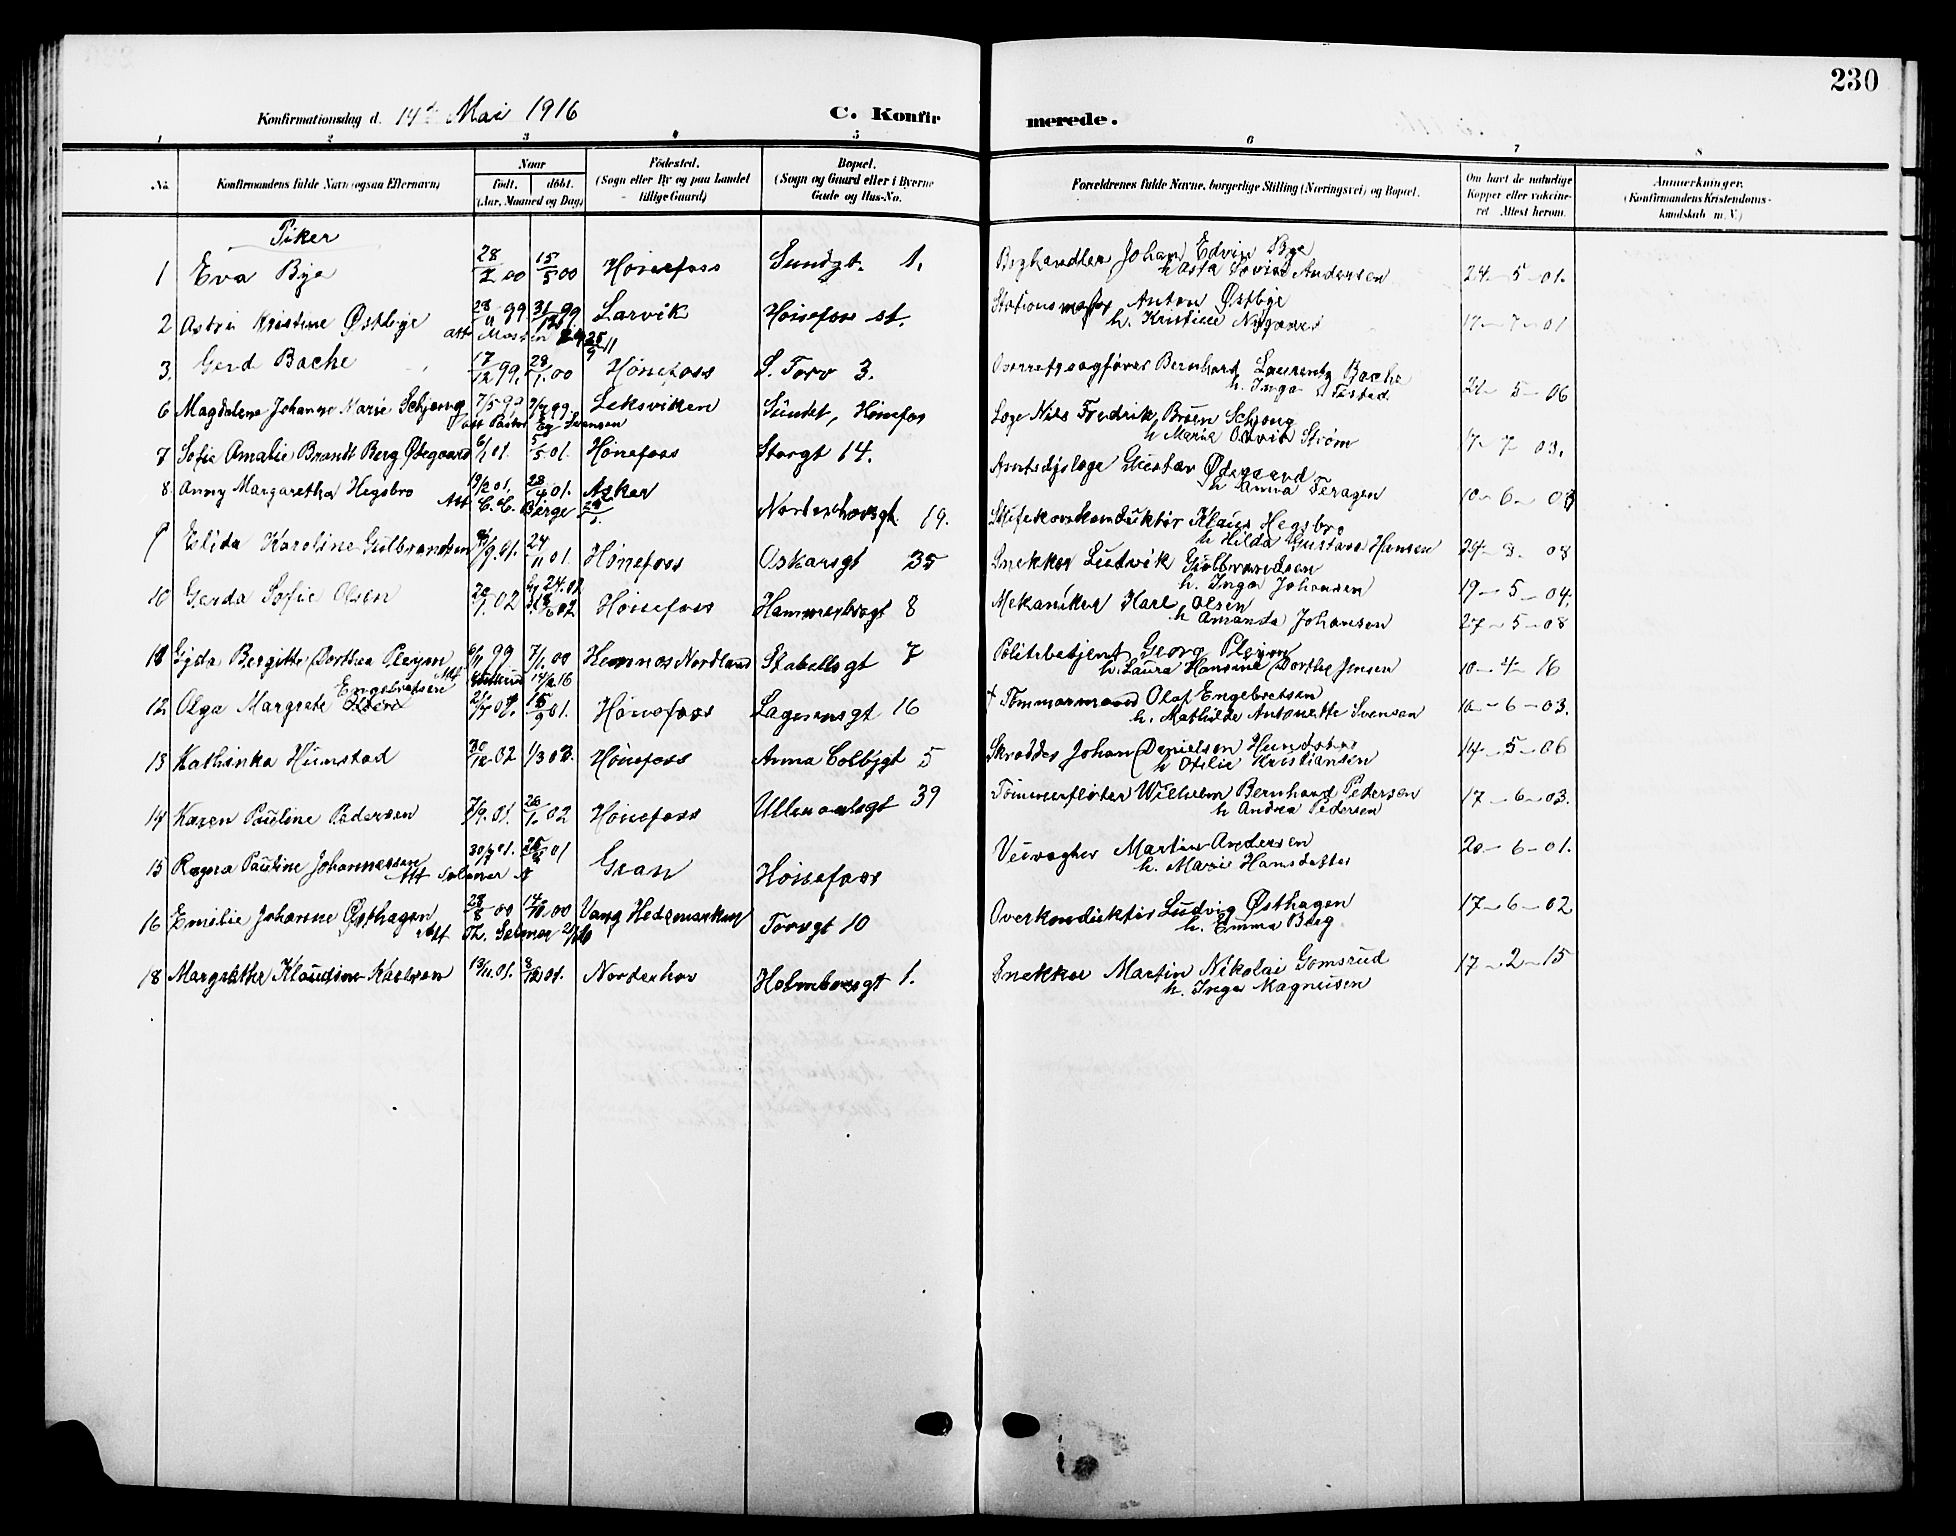 230
Konfirmationsdag d. 14de Mai 1916 C. Konfirmerede.
1 2 3 4 5 6 7 8
No. Konfirmandens fulde Navn (ogsaa Efternavn). Naar født. døbt. (Aar, Maaned og Dag) Fødested. (Sogn eller By og paa Landet tillige Gaard) Bopæl. (Sogn og Gaard eller i Byerne Gade og Hus-No. Forældrenes fulde Navne, borgerlige Stilling (Næringsvei) og Bopæl. Om havt de naturlige Kopper eller vakcineret Attest herom. Anmerkninger. (Konfirmandens Kristendomskundskab m. V.)
Piker
1 Eva Bye 28/2 00 15/5 00 Hønefoss Sundgt. 1. Boghandler Johan Edvin Bye
h. Asta Andersen 24-5-01.
2 Astri Kristine Østbye 28/11 99 31/12 99 Larvik Hønefoss st. Stationsmester Anton Østbye
h. Kristine Nygaard 17-7-01
3. Gerd Bache 17/12 99. 28/1. 00 Hønefoss S. Torv 3. Overretssagfører Bernhard Laurentz Bache
h. Inga Testad 21-5-06
6 Magdalene Johanne Marie Schjong 7/5 99 Leksviken Sundet, Hønefos Læge Nils Fredrik Broen Schjong
h Marie Strøm 17-7-03.
7 Sofie Amalie Brandt Berg Ødegaard 6/1 01. 5/5 01. Hønefoss Storgt 14. Amtsdyrlæge Gustav Ødegaard
h Anna Feragen 10-6-08
8. Anny Margaretha Hegsbro 19/2 01. 28/4 01. Asker Norderhovsgt. 19. Klaus Hegsbro
Att C. C. Børge
h Hilda Gustava Hansen 24-8-08
9 Elida Karoline Gulbrandsen 24/11 01. Hønefoss Oskarsgt 35 Snekker Ludvik Gulbrandsen
h. Inga Johansen 19-5-04.
10 Gerda Sofie Olsen 20/1. 02 Hønefoss Hammersbrogt 8 Mekaniker Karl Olsen
h Amanda Johansen 27-5-08
11 Gyda Bergitte Dorthea Pleym 6/11 99 7/1. 00 Hemnes Nordland Stabellsgt 7 Politibetjent Georg Pleym
h. Laura Hansine Dorthe Jensen 10-4-16
12 Olga Margrete Engebretsen 15/9 01. Hønefoss Lagesensgt 16 † Tømmermand Olaf Engebretsen
h. Mathilde Antonette Svensen 16-6-03.
13 Kathinka Hunstad 30/12 02 1/3 03. Hønefoss Anna Colbjgt 5 Skrædder Johan Danielsen
h Otilie Kristiansen 14-5-06
14 Karen Pauline Pedersen 7/9. 01. 26/1. 02 Hønefoss Ullernalsgt 39 Tømmerfløter Wilhelm Bernhard Pedersen
h Andrea Pedersen 17-6-03.
15 Ragna Pauline Johannessen 01. 01 Gran Hønefoss Veivogter Martin Andersen
h. Marie Hansdatter 20-6-01.
16 Emilie Johanne Østhagen 28/8 00 14/10. 00 Vang Hedemarken Torvgt 10 Overkonduktør Ludvig Østhagen
Att Th. Selmer
h. Emma Berg 17-6-02
18 Margrethe Klaudine Karlsen 13/11. 01. 8/12 01. Norderhov Holmboesgt 1. Snekker Martin Nikolai Gomsrud
h. Inga Magnusen 17-2-15